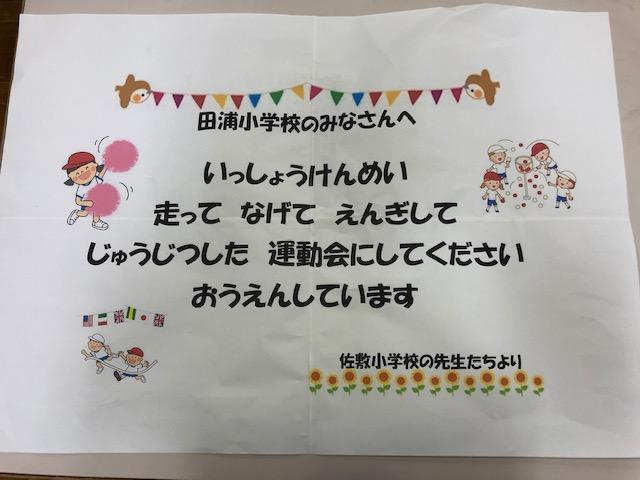 田浦小学校のみなさんへ
いっしょうけんめい
走って なげて えんぎして
じゅうじつした 運動会にしてください
おうえんしています
佐敷小学校の先生たちより